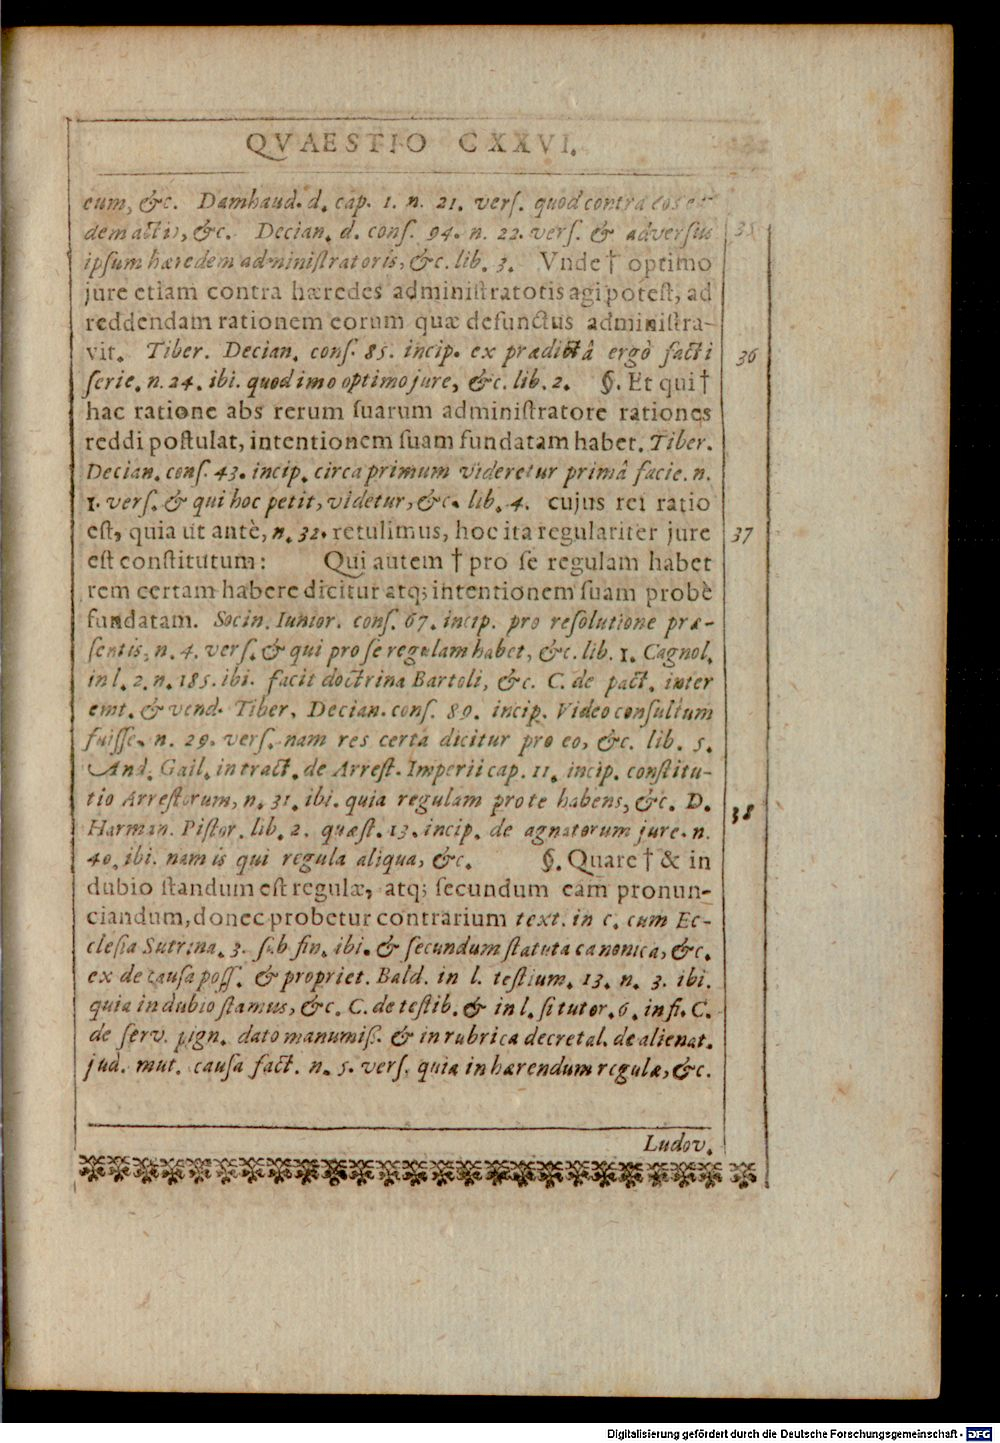 QVAESTIO CXXVI.
eum, &c. Damhaud. d. cap. 1. n. 21. verſ. quod contra eos
dem actio, &c. Decian. d. conſ. 94. n. 22. verſ. & adverſus
35
ipſum hæredem adminiſtratoris, &c. lib. 3. Vnde † optimo
jure etiam contra hæredes adminiſtratotis agi poteſt, ad
reddendam rationem eorum quæ defunctus adminiſtra-
vit. Tiber. Decian. conſ. 85. incip. ex prædictâ ergò facti
36
ſerie. n. 24. ibi. quod imo optimo jure, &c. lib. 2. §. Et qui †
hac ratione abs rerum ſuarum adminiſtratore rationes
reddi poſtulat, intentionem ſuam fundatam habet. Tiber.
Decian. conſ. 43. incip. circa primum videretur primâ facie. n.
1. verſ. & qui hoc petit, videtur, &c. lib. 4. cujus rei ratio
eſt, quia ut antè, n. 32. retulimus, hoc ita regulariter jure
37
eſt conſtitutum: Qui autem † pro ſe regulam habet
rem certam habere dicitur atq; intentionem ſuam probè
fundatam. Socin. Iunior. conſ. 67. incip. pro reſolutione præ-
ſentis, n. 4. verſ. & qui pro ſe regulam habet, &c. lib. 1. Cagnol.
in l. 2. n. 185. ibi. facit doctrina Bartoli, &c. C. de pact. inter
emt. & vend. Tiber. Decian. conſ. 89. incip. Video conſultum
fuiſſe. n. 29. verſ. nam res certa dicitur pro eo, &c. lib. 5.
And. Gail. in tract. de Arreſt. Imperii cap. 11. incip. conſtitu-
tio Arreſtorum, n. 31. ibi. quia regulam pro te habens, &c. D.
38
Harman. Piſtor. lib. 2. quæſt. 13. incip. de agnatorum jure. n.
40. ibi. nam is qui regula aliqua, &c. §. Quare † & in
dubio ſtandum eſt regulæ, atq; ſecundum eam pronun-
ciandum, donec probetur contrarium text. in c. cum Ec-
cleſia Sutrina. 3. ſub fin. ibi. & ſecundum ſtatuta canonica, &c.
ex de cauſa poſſ. & propriet. Bald. in l. teſtium. 13. n. 3. ibi.
quia in dubio ſtamus, &c. C. de teſtib. & in l. ſi tutor. 6. in fi. C.
de ſerv. pign. dato manumiß. & in rubrica decretal. de alienat.
jud. mut. cauſa fact. n. 5. verſ. quia in hærendum regulæ, &c.
Ludov.
Digitalisierung gefördert durch die Deutsche Forschungsgemeinschaft - DFG